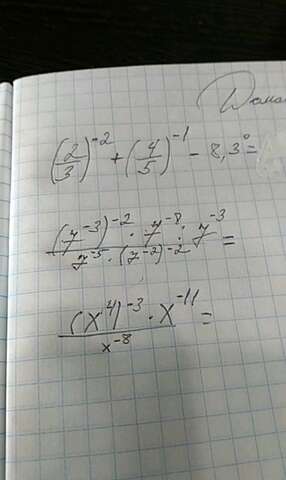 (2/3)^-2 + (4/5)^-1 - 8,3^0 =
(7^-3)^-2 · 7^-8 : 7^-3 =
7^-5 · (7^-2)^-2
(x^4)^-3 · x^-11 =
x^-8